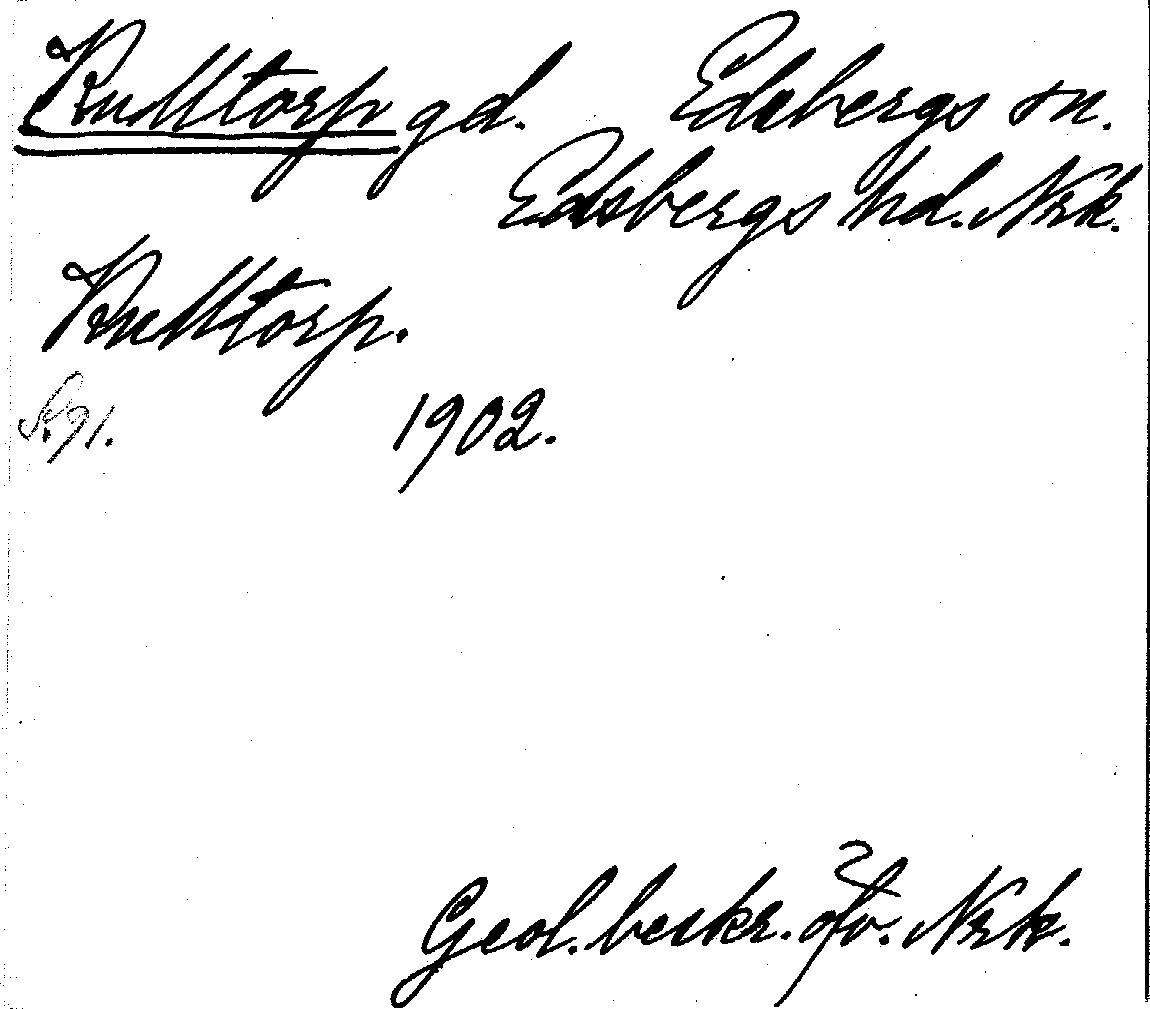 Rulltorp gd. Edsbergs sn.
Edsbergs hd. Nrk.
Rulltorp.
S. 91. 1902.
Geol. beskr. öfv. Nrk.